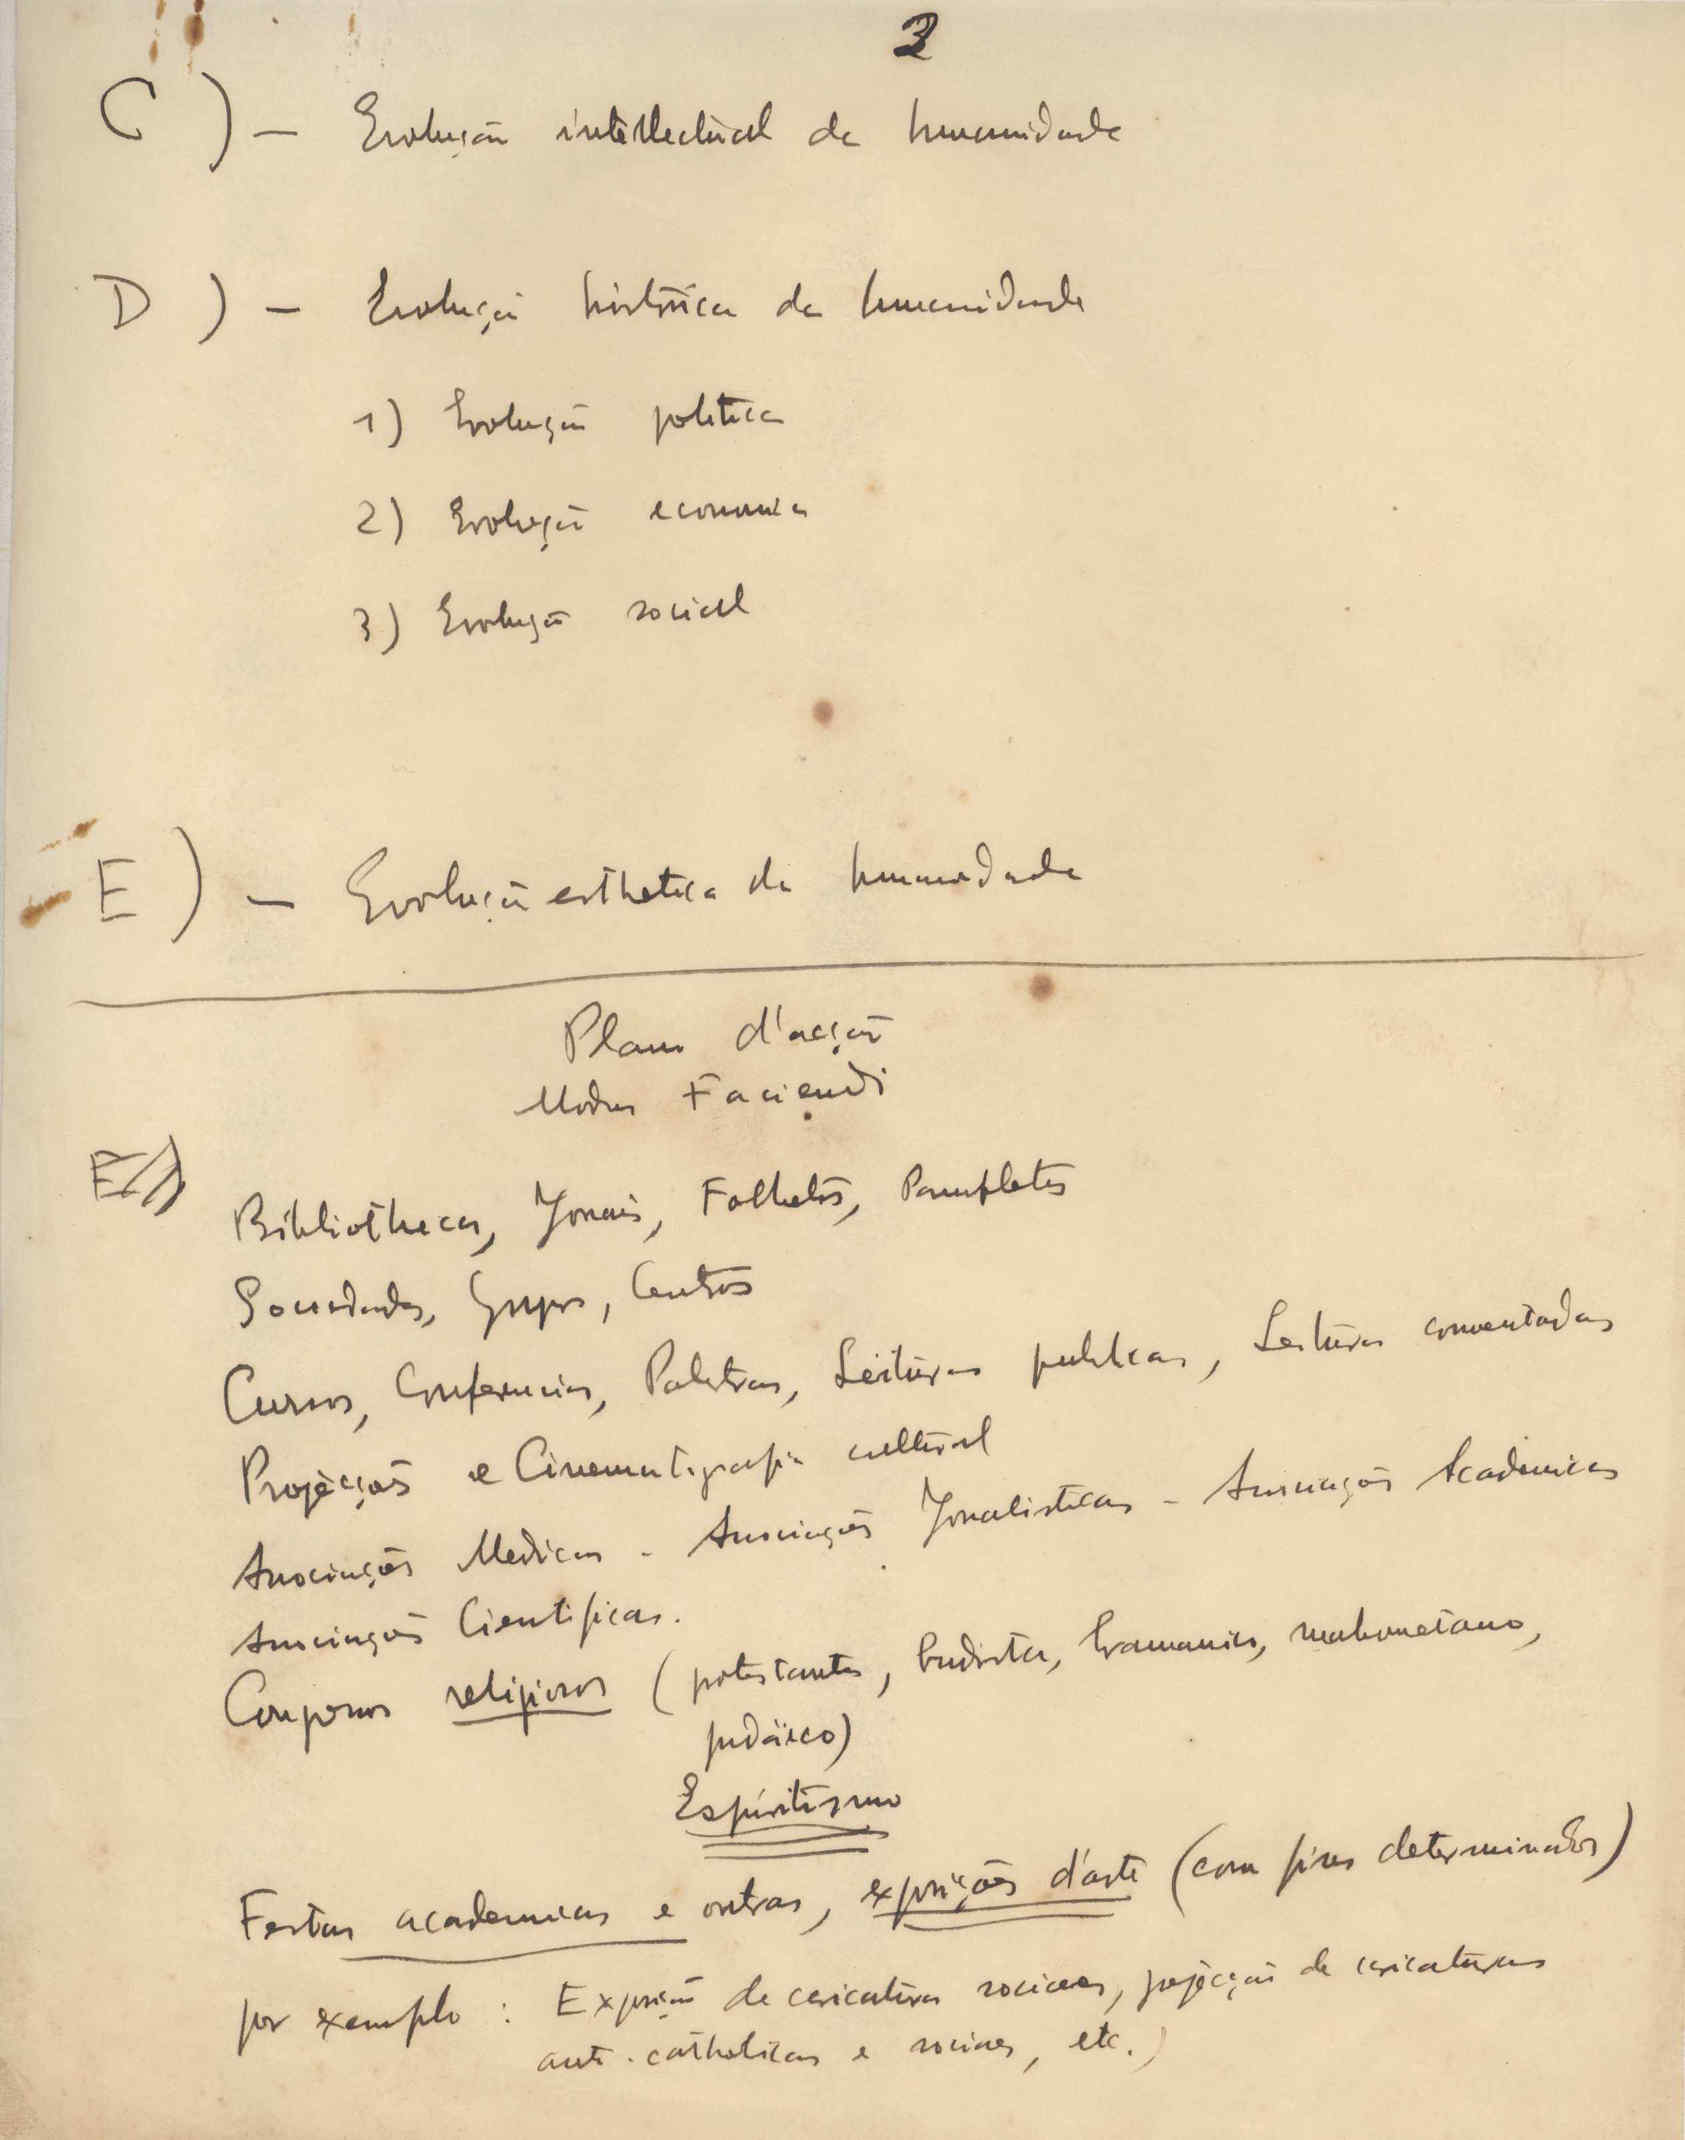 3
C) — Evolução intellectual da humanidade
D) — Evolução histórica da humanidade
1) Evolução politica
2) Evolução economica
3) Evolução social
E) — Evolução esthetica da humanidade
Plano d'acção
Modus Faciendi
Bibliothecas, Jornais, Folhetos, Pamphletos
Sociedades, Grupos, Centros
Cursos, Conferencias, Palestras, Leituras publicas, Leituras comentadas
Projecções e Cinematografia cultural
Associações Medicas - Associações Jornalisticas - Associações Academicas
Associações Cientificas.
religiosos (protestantes, budista, bramanico, mahometano,
judaico)
Espiritismo
Festas academicas e outras, exposições d'arte (com fins determinados)
por exemplo : Exposição de caricaturas sociaes, projecção de caricaturas
anti-catholicas e sociaes, etc.)